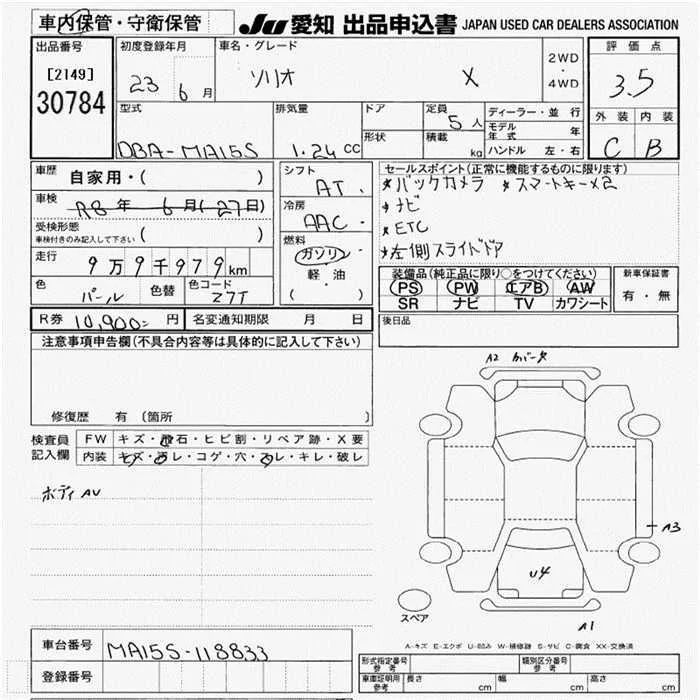 車内保管・守衛保管
JU 愛知 出品申込書 JAPAN USED CAR DEALERS ASSOCIATION
出品番号
[2149]
30784
初度登録年月
23 6月
車名・グレード
ソリオ X
2WD
・
4WD
評価点
3.5
外装 内装
C B
型式
DBA-MA15S
排気量
1.24cc
ドア
形状
定員
5人
積載
kg
ディーラー・並行
モデル年式 年
ハンドル 左・右
車歴
自家用・( )
車検
R8年 6月(27日)
受検形態
車検付きのみ記入して下さい ( )
走行
9万9千979km
色
パール
色替
色コード
Z7T
シフト
AT.
冷房
AAC.
燃料
ガソリン
軽油
( )
セールスポイント(正常に機能するものに限ります)
*バックカメラ *スマートキー×2
*ナビ
*ETC
*左側スライドドア
装備品(純正品に限り○をつけてください)
PS PW エアB AW
SR ナビ TV カワシート
新車保証書
有・無
R券 10,900- 円 名変通知期限 月 日
後日品
注意事項申告欄(不具合内容等は具体的に記入して下さい)
修復歴 有 〔箇所 〕
検査員
記入欄
FW キズ・飛石・ヒビ割・リペア跡・X要
内装 キズ・汚レ・コゲ・穴・スレ・キレ・破レ
ボディAU
A2 カバータ
A3
U4
A1
スペア
A-キズ E-エクボ U-凹み W-補修跡 S-サビ C-腐食 XX-交換済
車台番号 MA15S-118833
登録番号
形式指定番号
参考
類別区分番号
参考
車庫証明用
参考
長さ cm 幅 cm 高さ cm